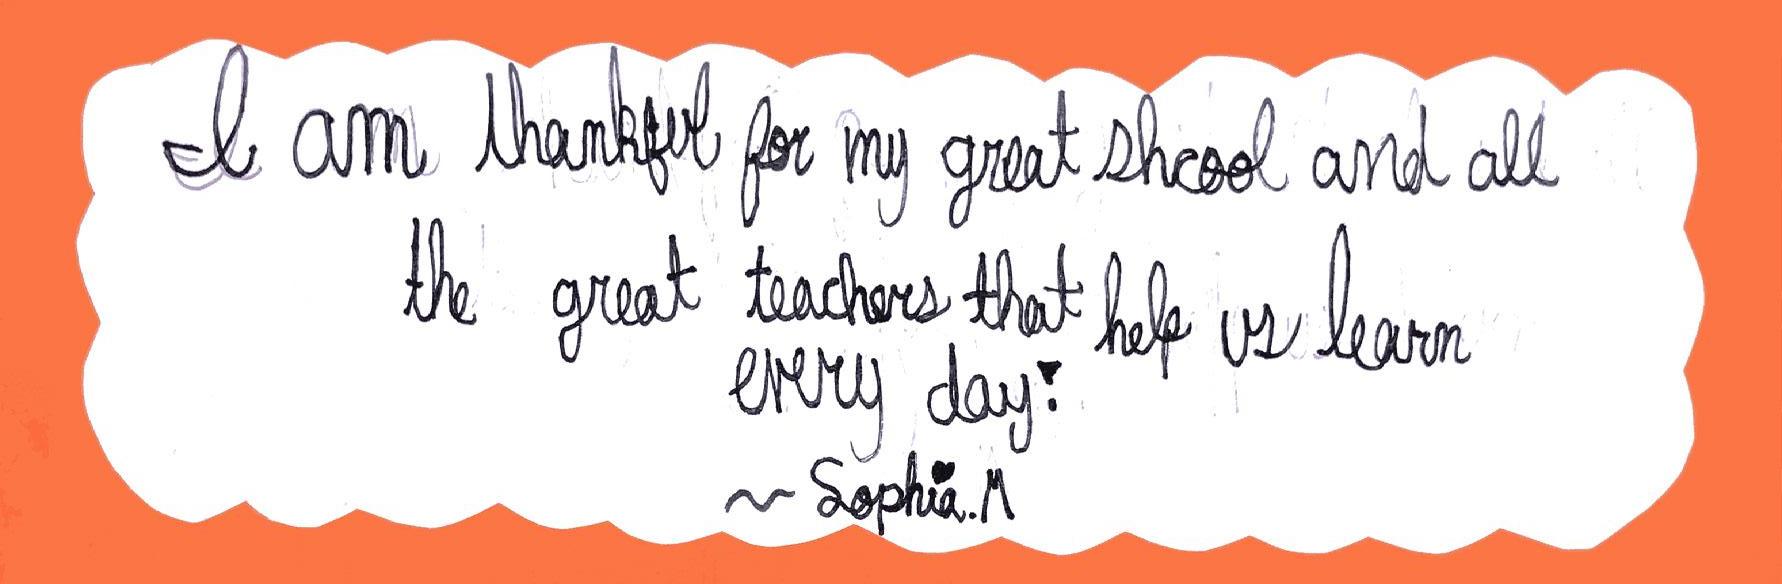 I am thankful for my great shcool and all
the great teachers that help us learn
every day!
~ Sophia.M